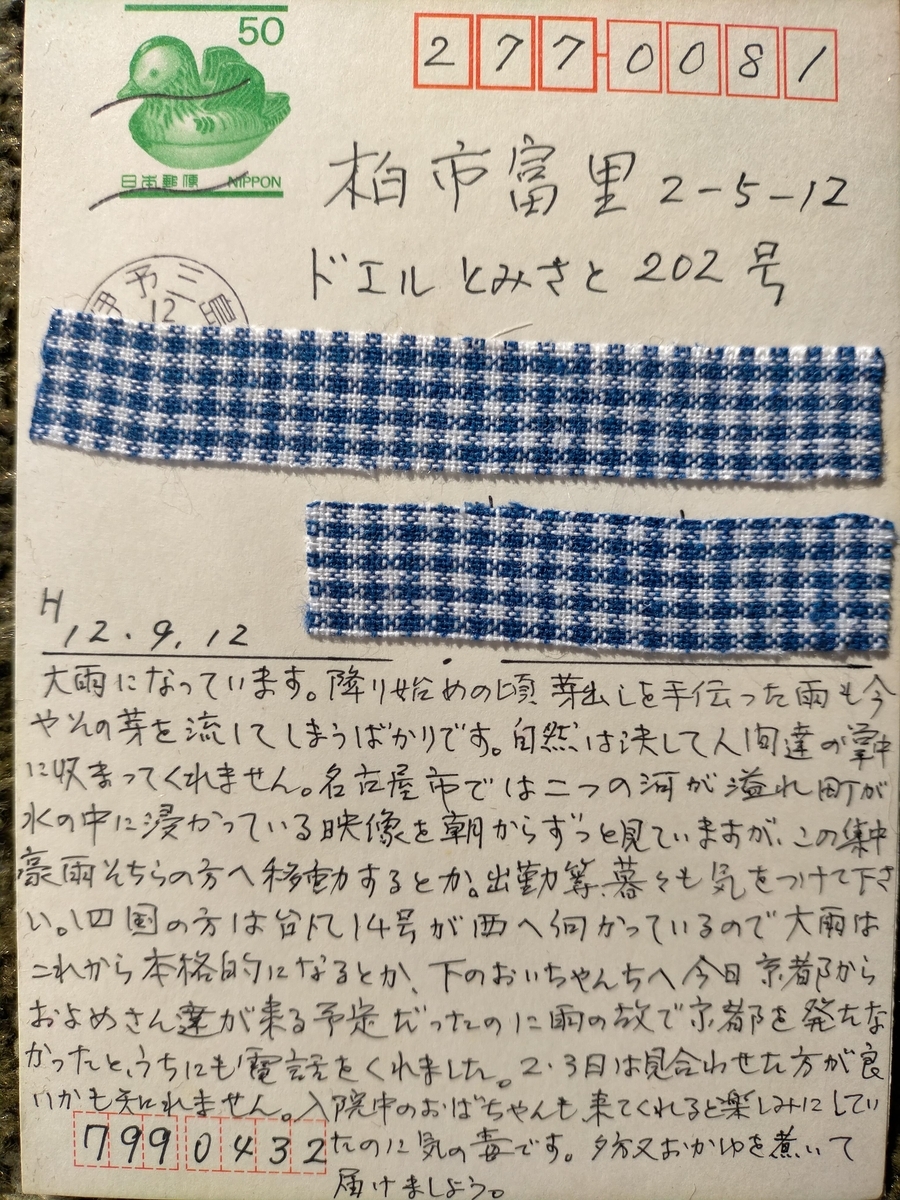 50
日本郵便 NIPPON
277-0081
柏市富里2-5-12
ドエルとみさと202号
伊予三島
12
H
12.9.12
大雨になっています。降り始めの頃芽出しを手伝った雨も今
やその芽を流してしまうばかりです。自然は決して人間達の掌中
に収まってくれません。名古屋市では二つの河が溢れ町が
水の中に浸かっている映像を朝からずっと見ていますが、この集中
豪雨そちらの方へ移動するとか。出勤等、暮々も気をつけて下さ
い。四国の方は台風14号が西へ向かっているので大雨は
これから本格的になるとか、下のおいちゃんちへ今日京都から
およめさん達が来る予定だったのに雨の故で京都を発たな
かったと、うちにも電話をくれました。2・3日は見合わせた方が良
いかも知れません。入院中のおばちゃんも来てくれると楽しみにしてい
たのに気の毒です。夕方又おかゆを煮いて
届けましょう。
7990432